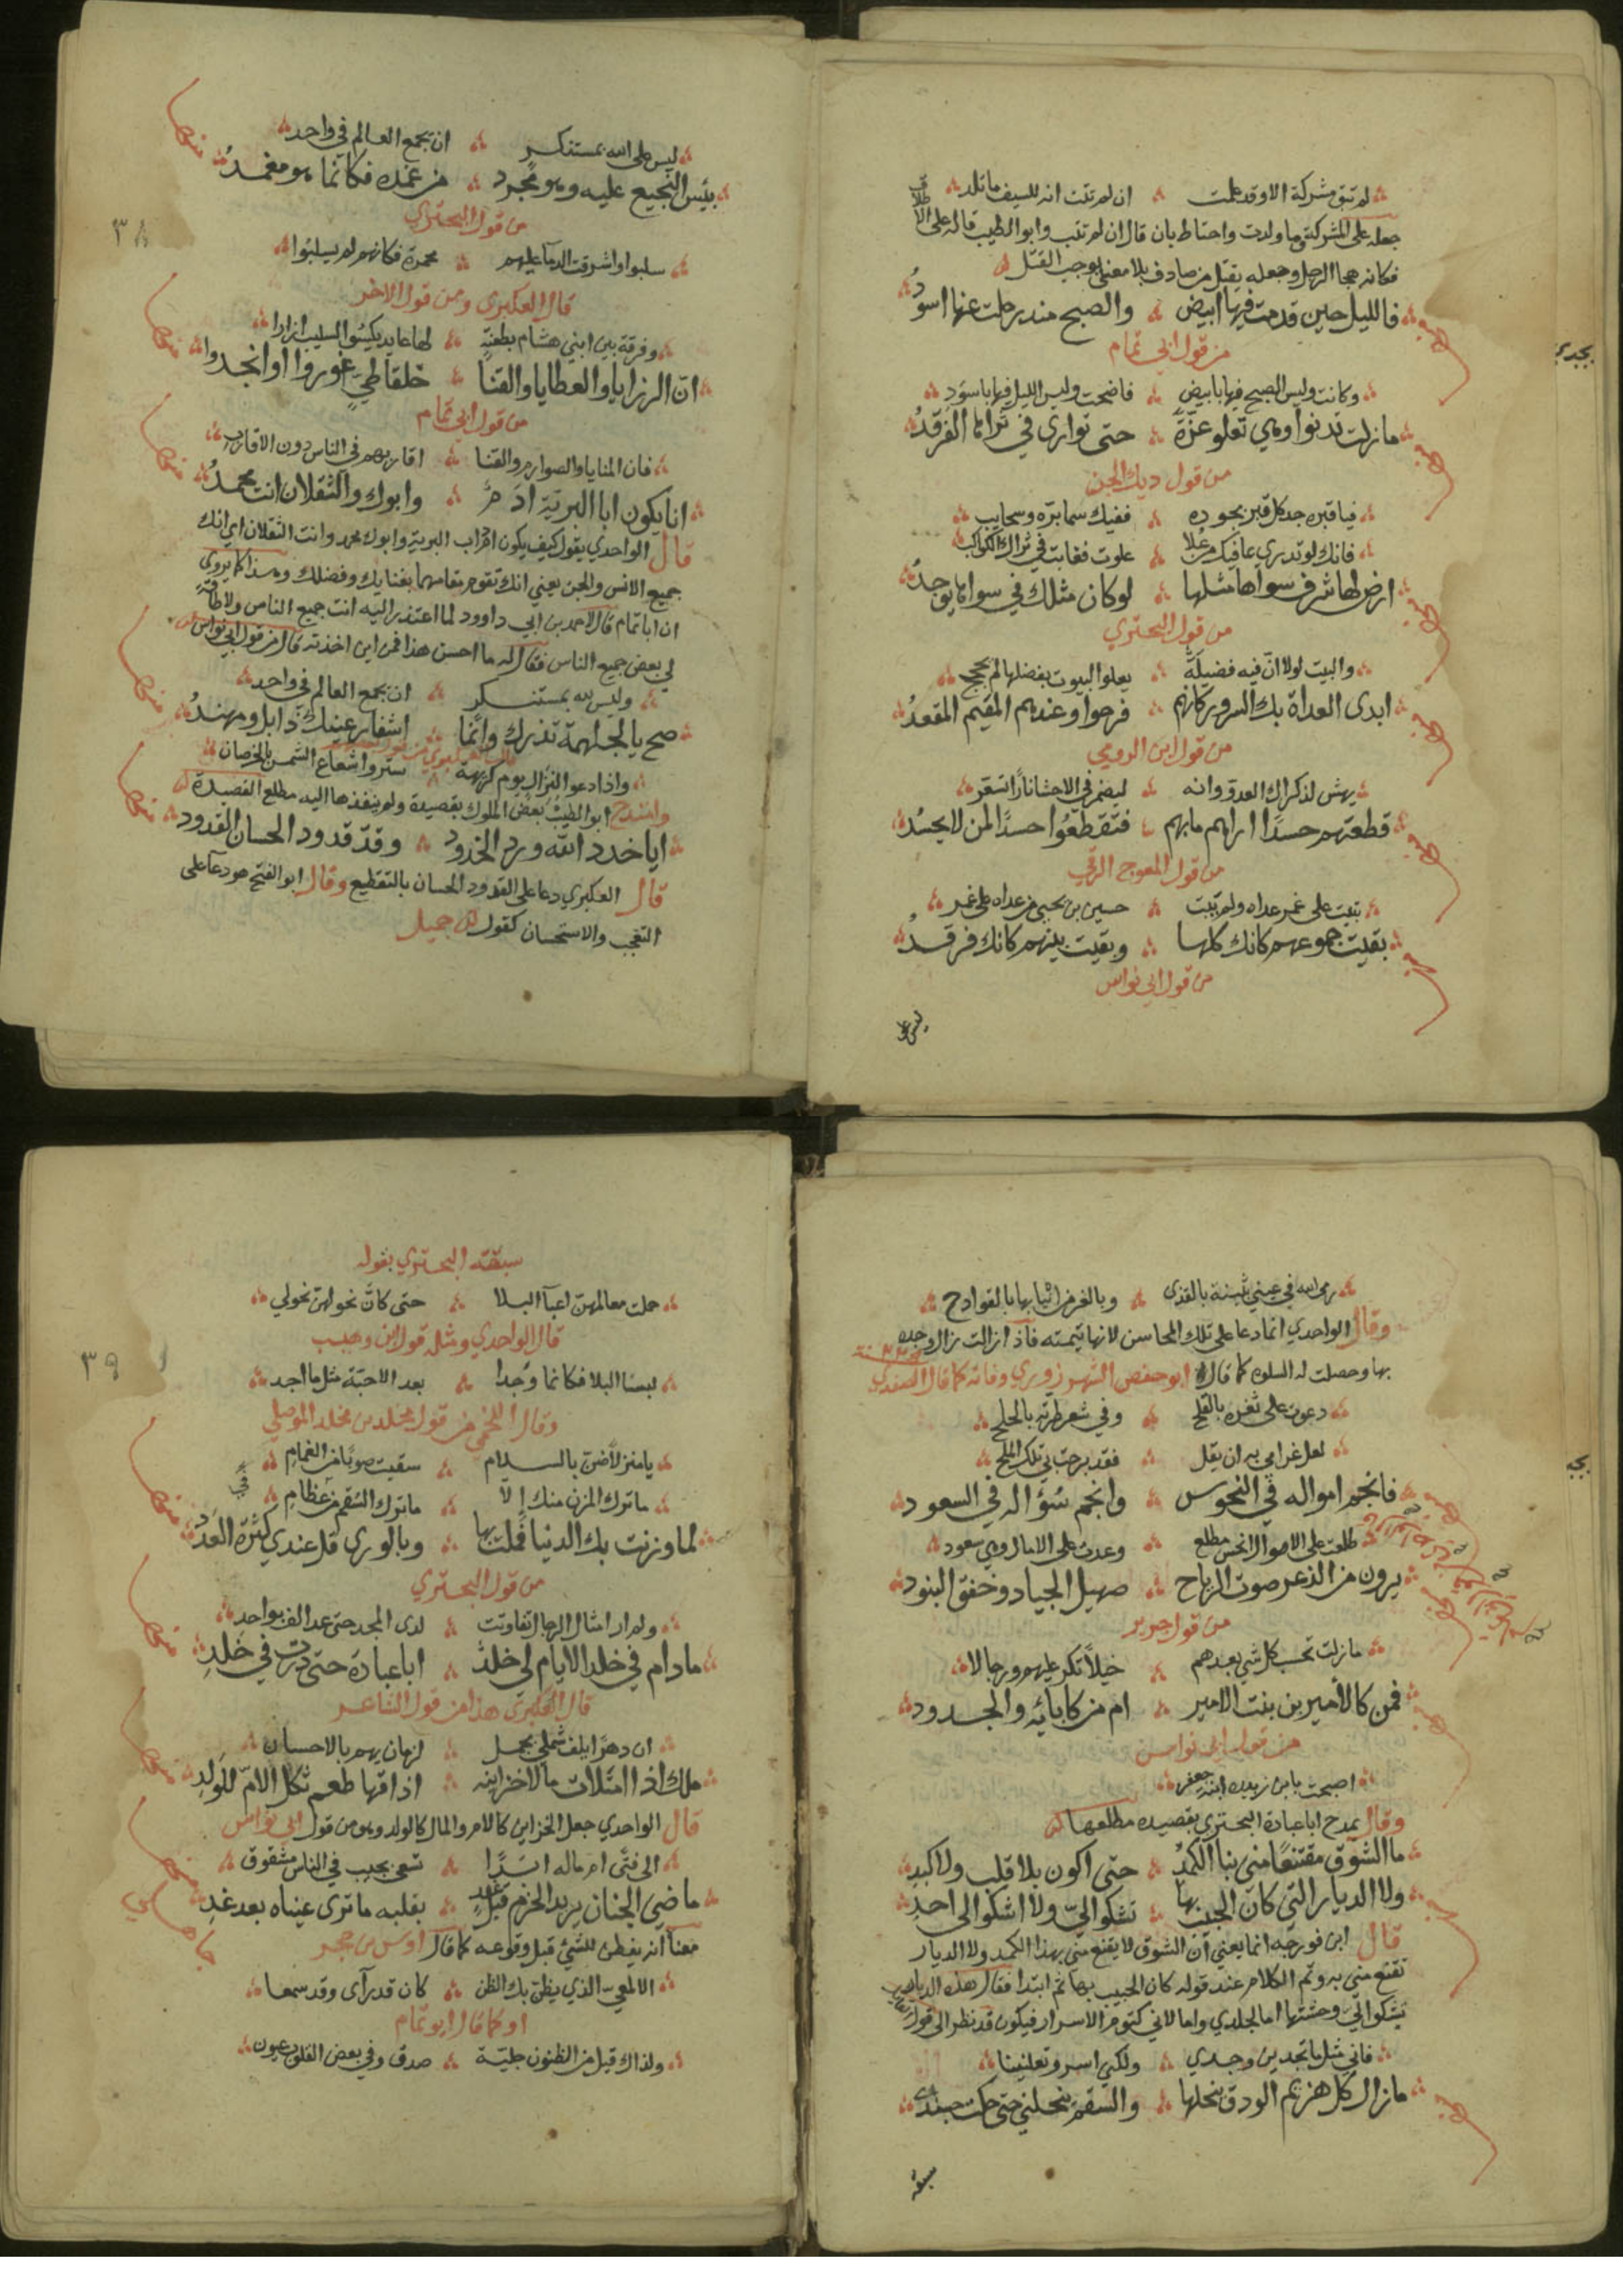 لم تبق مشركة الا وقد علمت ∴ ان لم تتب انه للسيف ما تلد
جعله على المشركة وما ولدت واحتاط بان قال ان لم تتب وابو الطيب قاله على الاطلاق
فكانه هجا الرجل وجعله يقتل من صادف بلا معنى يوجب القتل
فالليل حين قدمت فيها ابيض ∴ والصبح منذ رحلت عنها اسود
من قول ابي تمام
وكانت وليس الصبح فيها بابيض ∴ فاضحت وليس الليل فيها باسود
ما زلت تدنو وهي تعلو عزة ∴ حتى توارى في ثراها الفرقد
من قول ديك الجن
فيا قبره جد كل قبر بجوده ∴ ففيك سما برة وسحايب
فانك لو تدري بما فيك من علا ∴ علوت فغابت في ثراك الكواكب
ارض لها شرف سواها مثلها ∴ لو كان مثلك في سواها يوجد
من قول البحتري
والبيت لولا ان فيه فضيلة ∴ يعلو البيوت بفضلها لم يحجج
ابدى العداة بك السرور كانهم ∴ فرحوا وعندهم المقيم المقعد
من قول ابن الرومي
يهش لذكراك العدو وانه ∴ ليضمر في الاحشا نارا تسعر
قطعتهم حسدا اراهم ما بهم ∴ فتقطعوا حسدا لمن لا يحسد
من قول المعوج الرقي
بقيت جموعهم كانك كلها ∴ وبقيت بينهم كانك فرقد
من قول ابي نواس
ليس على
٣٨
ليس على الله بمستنكر ∴ ان يجمع العالم في واحد
يبس النجيع عليه وهو مجرد ∴ من غمده فكانما هو مغمد
من قول البحتري
سلبوا واشرقت الدماء عليهم ∴ محمرة فكانهم لم يسلبوا
قال العكبري ومن قول الاخر
وفرقة بين ابني هشام بطعنة ∴ لها عايد يكسو السليب ازارا
ان الرزايا والعطايا والقنا ∴ خلفا طي غوروا او انجدوا
من قول ابي تمام
فان المنايا والصوارم والقنا ∴ اقاربهم في الناس دون الاقارب
انا يكون ابا البرية ادم ∴ وابوك والثقلان انت محمد
قال الواحدي يقول كيف يكون ادم اب البرية وابوك محمد وانت الثقلان اي انك
جميع الانس والجن يعني انك تقوم مقامهما بغنايك وفضلك وهذا كما يروى
ان ابا تمام قال لاحمد بن ابي داوود لما اعتذر اليه انت جميع الناس ولا طاقة
لي بغضب جميع الناس فقال له ما احسن هذا فمن اين اخذته قال من قول ابي نواس
وليس لله بمستنكر ∴ ان يجمع العالم في واحد
صح يا لجلهمة تذرك وانما ∴ اشفار عينك ذابل ومهند
واذا دعوا لنزال يوم كريهة ∴ ستروا شعاع الشمس بالخرصان
وامتدح ابو الطيب بعض الملوك بقصيدة ولم ينفذها اليه مطلع القصيدة
ايا خدد الله ورد الخدود ∴ وقد قدود الحسان القدود
قال العكبري دعا على القدود الحسان بالتقطيع وقال ابو الفتح هو دعا على
التعجب والاستحسان كقول جميل
رمى الله في عيني بثينة بالقذى ∴ وبالغر من انيابها بالقوادح
وقال الواحدي انما دعا على تلك المحاسن لانها تيمته فاذا زالت زال وجده
بها وحصلت له السلوة كما قال ابو حفص الشهرزوري وفاته كما قال الصفدي
دعوت على ثغره بالقلح ∴ وفي شعر طرته بالجلح
لعل غرامي به ان يقل ∴ فقد برحت بي تلك الملح
فانجم امواله في النحوس ∴ وانجم سؤاله في السعود
طلعت على الاموال انحس مطلع ∴ وغدت على الامال وهي سعود
يرون من الذعر صوت الرياح ∴ صهيل الجياد وخفق البنود
من قول جرير
ما زلت تحسب كل شي بعدهم ∴ خيلا تكر عليهم ورجالا
فمن كالامير بن بنت الامير ∴ ام من كابائه والجدود
من قول ابي نواس
اصبحت يا بن زبيدة ابنة جعفر
وقال يمدح ابا عبادة البحتري بقصيدة مطلعها
ما الشوق مقتنعا مني بذا الكمد ∴ حتى اكون بلا قلب ولا كبد
ولا الديار التي كان الحبيب بها ∴ تشكو الي ولا اشكو الى احد
قال ابن فورجه انما يعني ان الشوق لا يقنع مني بهذا الكمد ولا الديار
تقنع مني به وتم الكلام عند قوله كان الحبيب بها ثم ابتدا فقال هذه الديار
تشكو الي وحشتها اما لجلدي واما لاني كتوم الاسرار فيكون قد نظر الى قول
فاني مثل ما تجدين وجدي ∴ ولكني اسر وتعلنينا
ما زال كل هزيم الودق ينحلها ∴ والسقم ينحلني حتى حكت جسدي
سبقه
٣٩
سبقه البحتري بقوله
حملت معالمهن اعباء البلا ∴ حتى كان نحولهن نحولي
قال الواحدي ومثله قول ابن وهيب
لبسا البلا فكانما وجدا ∴ بعد الاحبة مثل ما اجد
وقال اللخمي من قول مخلد بن مخلد الموصلي
يا منزلا ضن بالسلام ∴ سقيت صوبا من الغمام
ما ترك المزن منك الا ∴ ما ترك السقم من عظامي
لما وزنت بك الدنيا فملت بها ∴ وبالورى قل عندي كثرة العدد
من قول البحتري
ولم ار امثال الرجال تفاوتت ∴ لدى المجد حتى عد الف بواحد
ما دام في خلد الايام لي خلد ∴ ابا عبادة حتى درت في خلدي
قال العكبري هذا من قول الشاعر
ان دهرا يلف شملي بجمل ∴ لزمان يهم بالاحسان
ملك اذا امتلات مالا خزاينه ∴ اذاقها طعم ثكل الام للولد
قال الواحدي جعل الخزاين كالام والمال كالولد وهو من قول ابي نواس
الى فتى ام ماله ابدا ∴ تسعى بجيب في الناس مشقوق
ماضي الجنان يريه الحزم قبل غد ∴ بقلبه ما ترى عيناه بعد غد
معناه انه يفطن للشئ قبل وقوعه كما قال اوس بن حجر
الالمعي الذي يظن بك الظن ∴ كان قد رآى وقد سمعا
او كما قال ابو تمام
ولذاك قيل من الظنون جلية ∴ صدق وفي بعض القلوب عيون